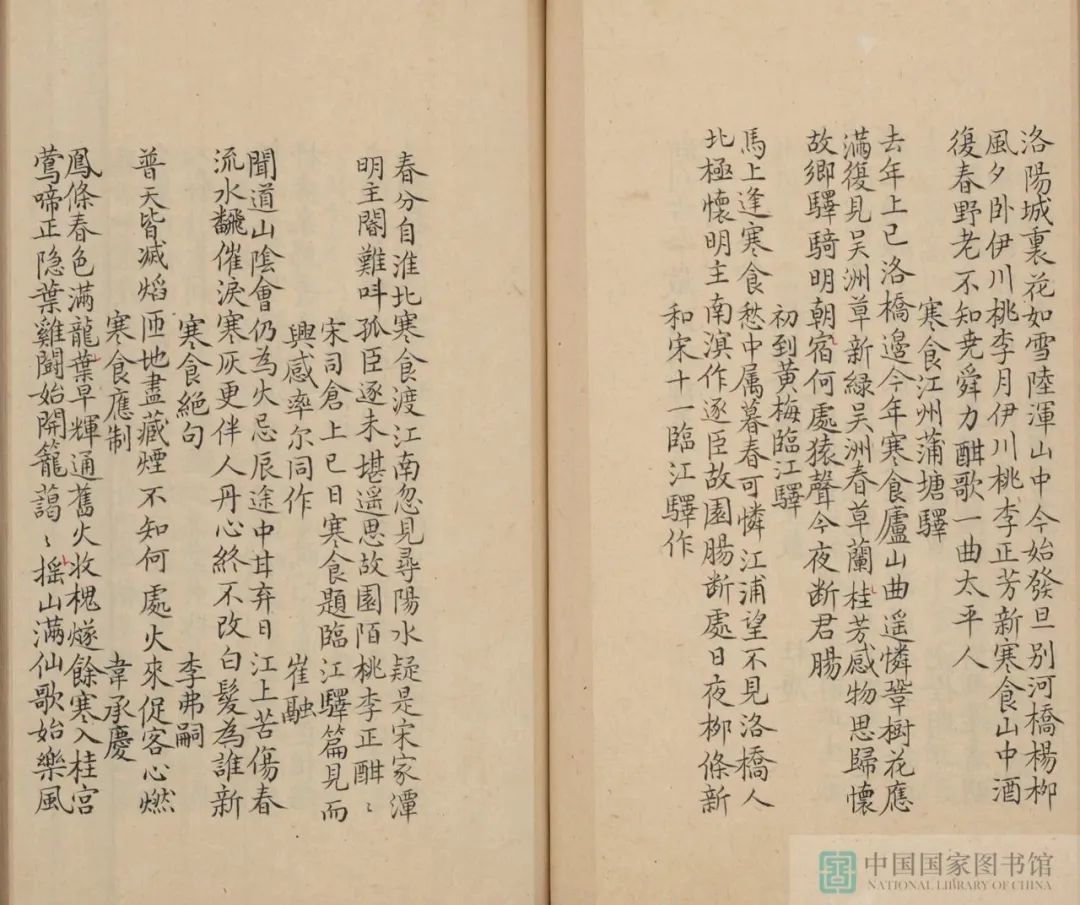 洛陽城裏花如雪陸渾山中今始發旦別河橋楊栁
風夕卧伊川桃李月伊川桃李正芳新寒食山中酒
復春野老不知尭舜力酣歌一曲太平人
寒食江州蒲塘驛
去年上巳洛橋邊今年寒食廬山曲遥憐鞏樹花應
滿復見吴洲草新緑吴洲春草蘭桂芳感物思歸懷
故鄉驛騎明朝宿何處猿聲今夜断君腸
初到黄梅臨江驛
馬上逢寒食愁中属暮春可憐江浦望不見洛橋人
北極懷明主南溟作逐臣故園腸断處日夜栁條新
和宋十一臨江驛作
春分自淮北寒食渡江南忽見尋陽水疑是宋家潭
明主閽難呌孤臣逐未堪遥思故園陌桃李正酣〻
宋司倉上巳日寒食題臨江驛篇見而
興感率尔同作 崔融
聞道山陰會仍為火忌辰途中甘弃日江上苦傷春
流水飜催淚寒灰更伴人丹心終不改白髮為誰新
寒食絕句 李弗嗣
普天皆滅熖匝地盡藏煙不知何處火來促客心燃
寒食應制 韋承慶
鳳條春色滿龍葉早輝通舊火收槐燧餘寒入桂宮
鶯啼正隐葉雞鬪始開籠藹〻摇山滿仙歌始樂風
中国国家图书馆
NATIONAL LIBRARY OF CHINA